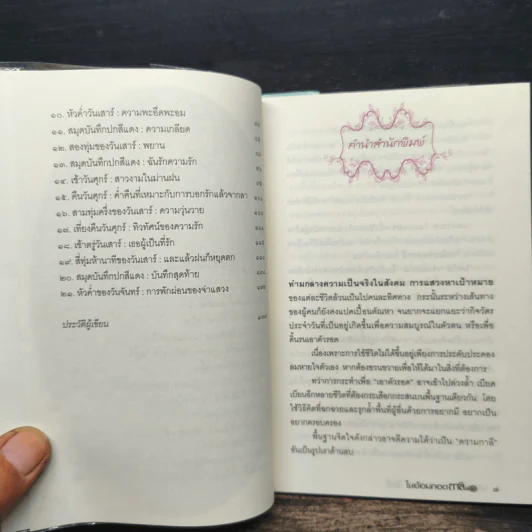 ๑๐. หัวค่ำวันเสาร์ : ความพะอืดพะอม
๑๑. สมุดบันทึกปกสีแดง : ความเกลียด
๑๒. สองทุ่มของวันเสาร์ : พยาน
๑๓. สมุดบันทึกปกสีแดง : ฉันรักความรัก
๑๔. เช้าวันศุกร์ : สาวงามในม่านฝน
๑๕. คืนวันศุกร์ : ค่ำคืนที่เหมาะกับการบอกรักแล้วจากลา
๑๖. สามทุ่มครึ่งของวันเสาร์ : ความวุ่นวาย
๑๗. เที่ยงคืนวันศุกร์ : ทิวทัศน์ของความรัก
๑๘. เช้าตรู่วันเสาร์ : เธอผู้เป็นที่รัก
๑๙. สี่ทุ่มห้านาทีของวันเสาร์ : และแล้วฝนก็หยุดตก
๒๐. สมุดบันทึกปกสีแดง : บันทึกสุดท้าย
๒๑. หัวค่ำของวันจันทร์ : การพักผ่อนของจ่าแสวง
ประวัติผู้เขียน
คำนำสำนักพิมพ์
ท่ามกลางความเป็นจริงในสังคม การแสวงหาเป้าหมาย
ของแต่ละชีวิตล้วนเป็นไปคนละทิศทาง กระนั้นระหว่างเส้นทาง
ของผู้คนก็ยังคงแปดเปื้อนตัณหา จนยากจะแยกแยะว่ากิจวัตร
ประจำวันที่เป็นอยู่เกิดขึ้นเพื่อความสมบูรณ์ในตัวตน หรือเพื่อ
ดิ้นรนเอาตัวรอด
เนื่องเพราะการใช้ชีวิตไม่ได้ขึ้นอยู่เพียงการประคับประคอง
ลมหายใจตัวเอง หากต้องขวนขวายเพื่อให้ได้มาในสิ่งที่ต้องการ
ทว่าการกระทำเพื่อ "เอาตัวรอด" อาจเข้าไปล่วงล้ำ เบียด
เบียนอีกหลายชีวิตที่ต้องกระเสือกกระสนบนพื้นฐานเดียวกัน โดย
ใช้วิธีคิดที่ฉกฉวยและรุกล้ำพื้นที่ผู้อื่นด้วยการอยากมี อยากเป็น
อยากครอบครอง
พื้นฐานจิตใจดังกล่าวอาจตีความได้ว่าเป็น "ความกาลี"
อันเป็นรูปเงาด้านลบ